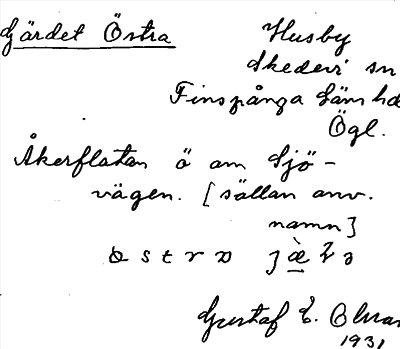 Gärdet Östra
Husby
Skedevi sn
Finspånga läns hd
Ögl.
Åkerflatan ö om Sjö-
vägen. [sällan anv.
namn]
Gustaf E.
1931